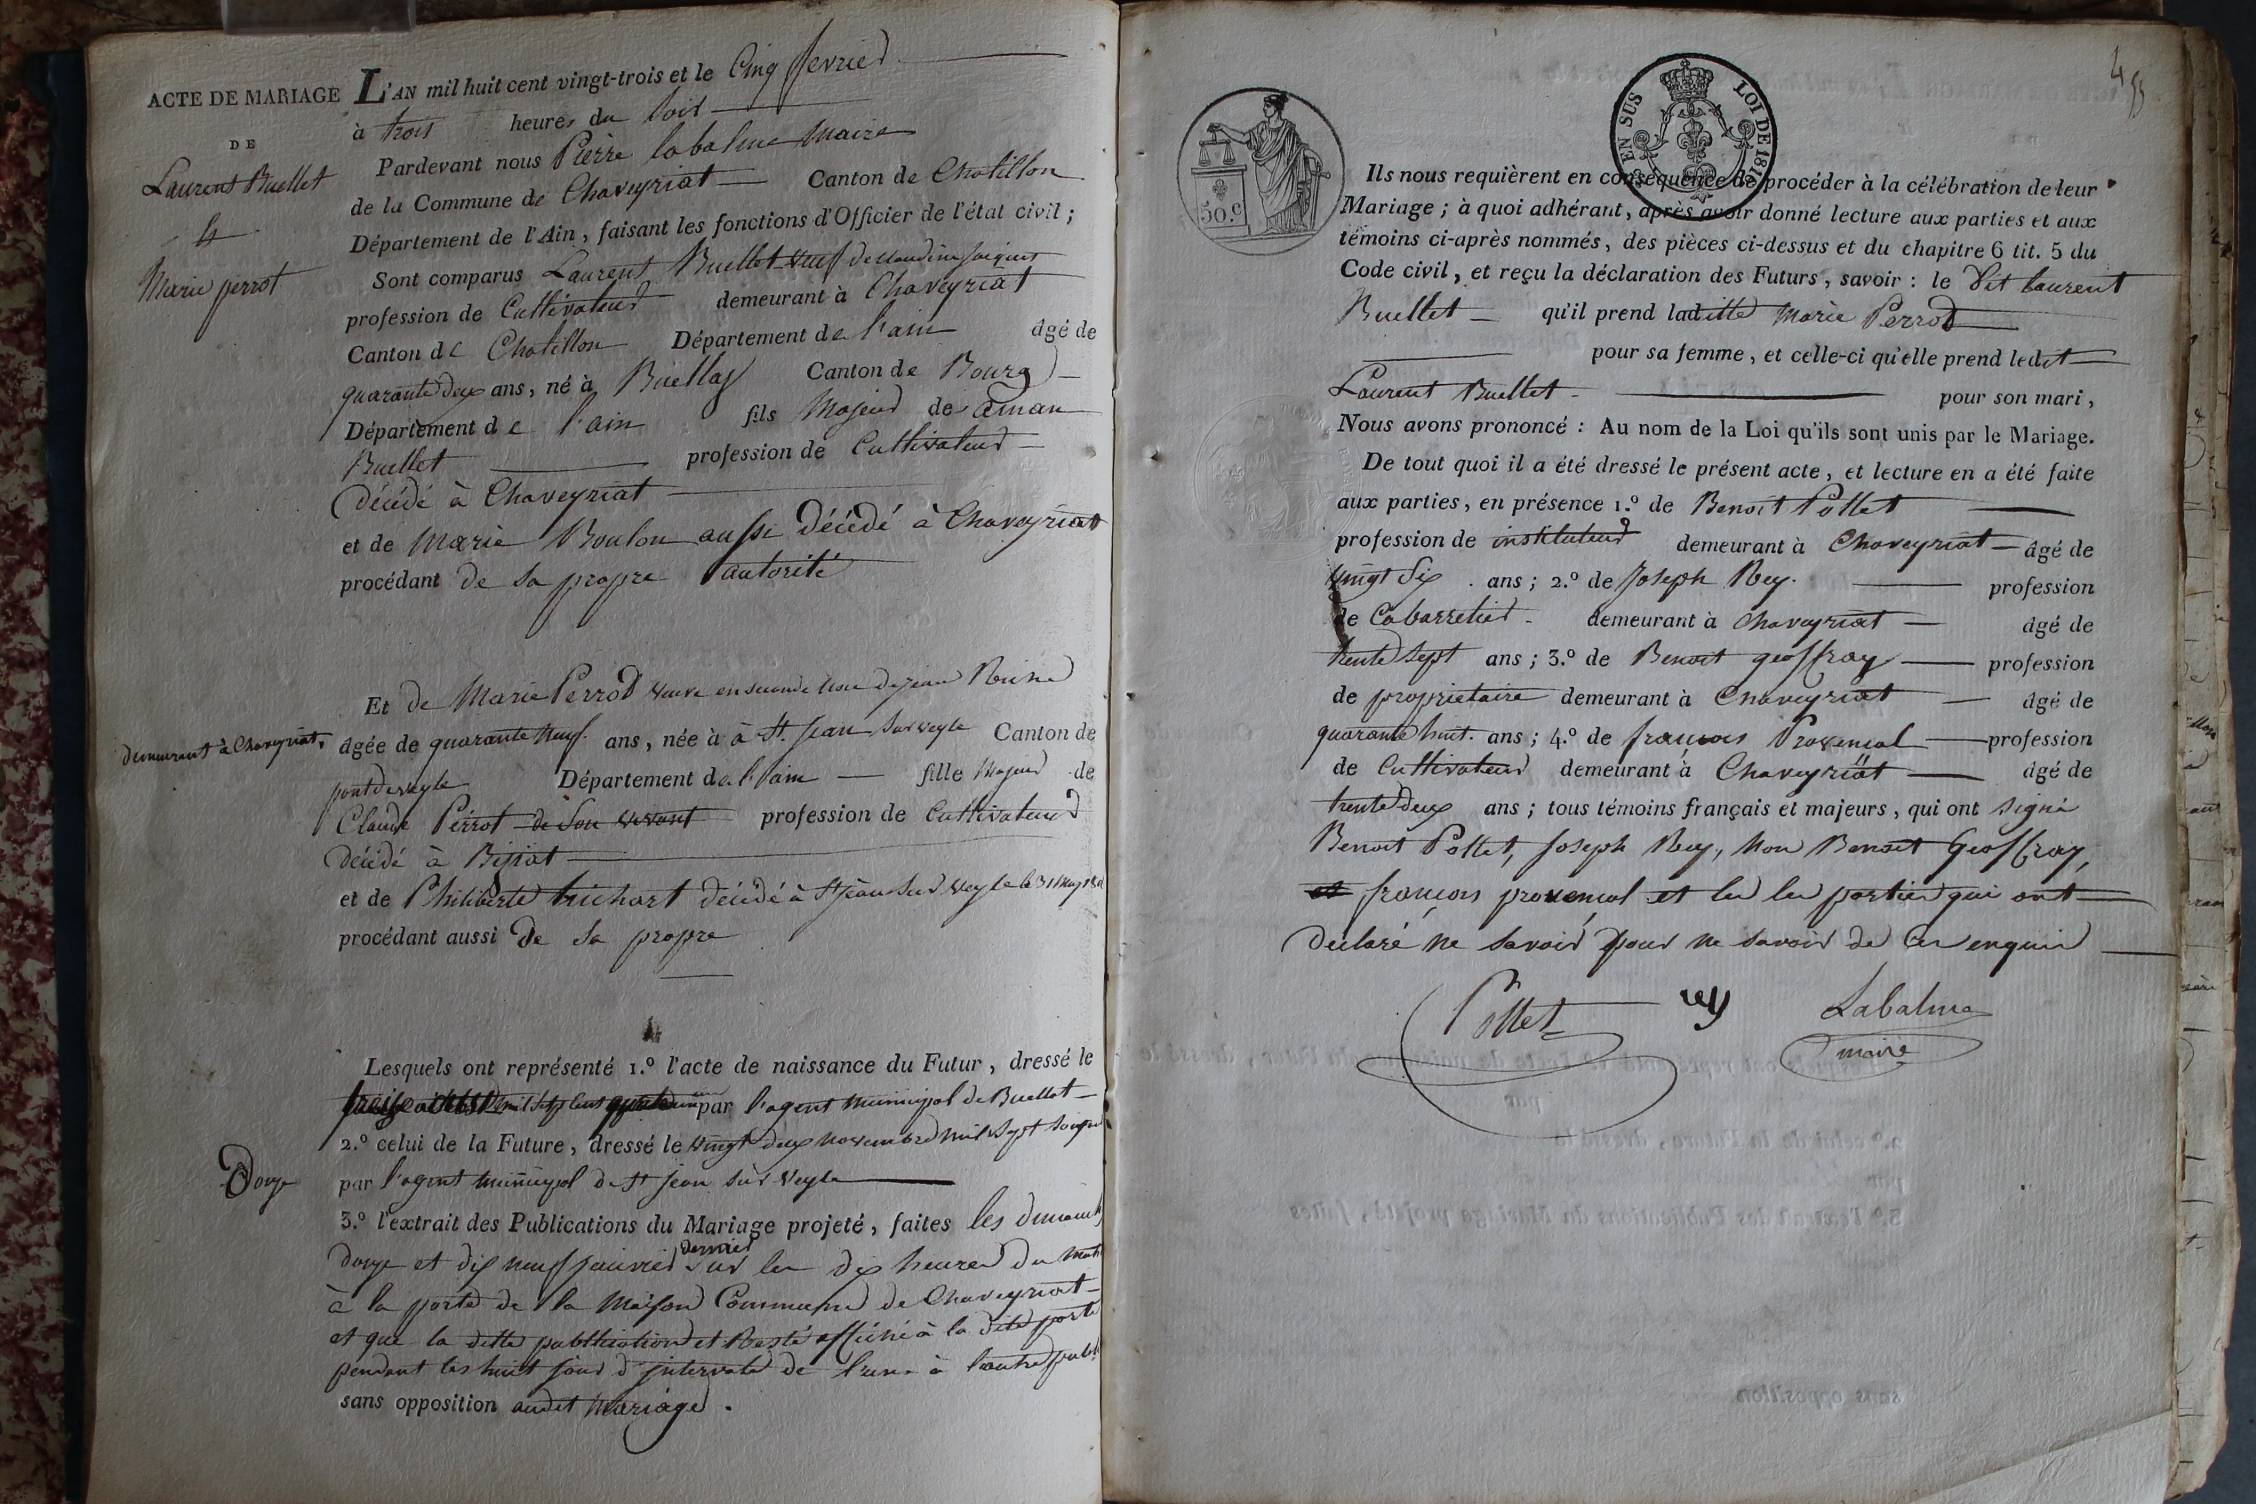 ACTE DE MARIAGE
DE
Laurent Buellet
&
Marie perrot
L'AN mil huit cent vingt-trois et le Cinq fevrier
à trois heures du soir
Pardevant nous Pierre labalme Maire
de la Commune de Chaveyriat Canton de Chatillon
Département de l'Ain, faisant les fonctions d'Officier de l'état civil ;
Sont comparus Laurent Buellet veuf de
profession de Cultivateur demeurant à Chaveyriat
Canton de Chatillon Département de l'ain âgé de
quarante deux ans, né à Buellas Canton de Bourg
Département de l'ain fils Majeur de aman
Buellet profession de Cultivateur
décédé à Chaveyriat
et de Marie Boulon aussi décédé à Chaveyriat
procédant de sa propre autorité
Et de Marie Perrod veuve en seconde noce de jean
demeurant à Chaveyriat,
âgée de quarante neuf ans, née à à St. Jean sur veyle Canton de
pont de veyle Département de l'ain fille Majeur de
Claude Perrot de son vivant profession de Cultivateur
décédé à Biziat
et de Philiberte trichart décédé à St jean sur Veyle le 31 may
procédant aussi de sa propre
Lesquels ont représenté 1.º l'acte de naissance du Futur, dressé le
mil sept cent par l'agent municipal de Buellat
2.º celui de la Future, dressé le vingt deux novembre mil sept
Douze
par l'agent municipal de St jean sur Veyle
3.º l'extrait des Publications du Mariage projeté, faites les dimanches
douze et dix neuf janvier dernier sur les dix heures du matin
à la porte de la Maison Commune de Chaveyriat
et que la ditte publication et resté affiché à la dite porte
pendant les huit jour d'intervale de l'une à l'autre publ
sans opposition audit mariage.
455
EN SUS LOI DE 1816
50.c
Ils nous requièrent en conséquence de procéder à la célébration de leur
Mariage ; à quoi adhérant, après avoir donné lecture aux parties et aux
témoins ci-après nommés, des pièces ci-dessus et du chapitre 6 tit. 5 du
Code civil, et reçu la déclaration des Futurs, savoir : le dit laurent
Buellet qu'il prend laditte Marie Perrod
pour sa femme, et celle-ci qu'elle prend ledit
Laurent Buellet pour son mari,
Nous avons prononcé : Au nom de la Loi qu'ils sont unis par le Mariage.
De tout quoi il a été dressé le présent acte, et lecture en a été faite
aux parties, en présence 1.º de Benoit Pollet
profession de instituteur demeurant à Chaveyriat âgé de
vingt six ans ; 2.º de Joseph Rey profession
de Cabarretier demeurant à Chaveyriat âgé de
trente sept ans ; 3.º de Benoit geoffray profession
de proprietaire demeurant à Chaveyriat âgé de
quarante huit ans ; 4.º de francois Provencal profession
de Cultivateur demeurant à Chaveyriat âgé de
trente deux ans ; tous témoins français et majeurs, qui ont signé
Benoit Pollet, Joseph Rey, non Benoit Geoffray,
et francois provencal et les parties qui ont
déclaré ne savoir pour ne savoir de ce enquis
Pollet
rey
Labalme
maire